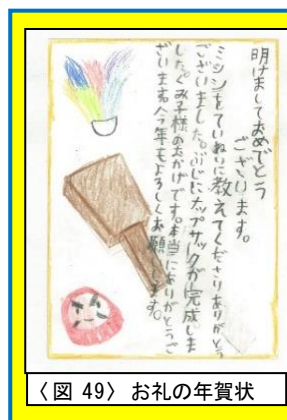 明けましておめでとう
ございます。
ミシンをていねいに教えてくださりありがとう
ございました。ぶじにナップサックが完成しま
した。くみ子様のおかげです。本当にありがとうご
ざいます。今年もよろしくお願いします。
〈図 49〉 お礼の年賀状